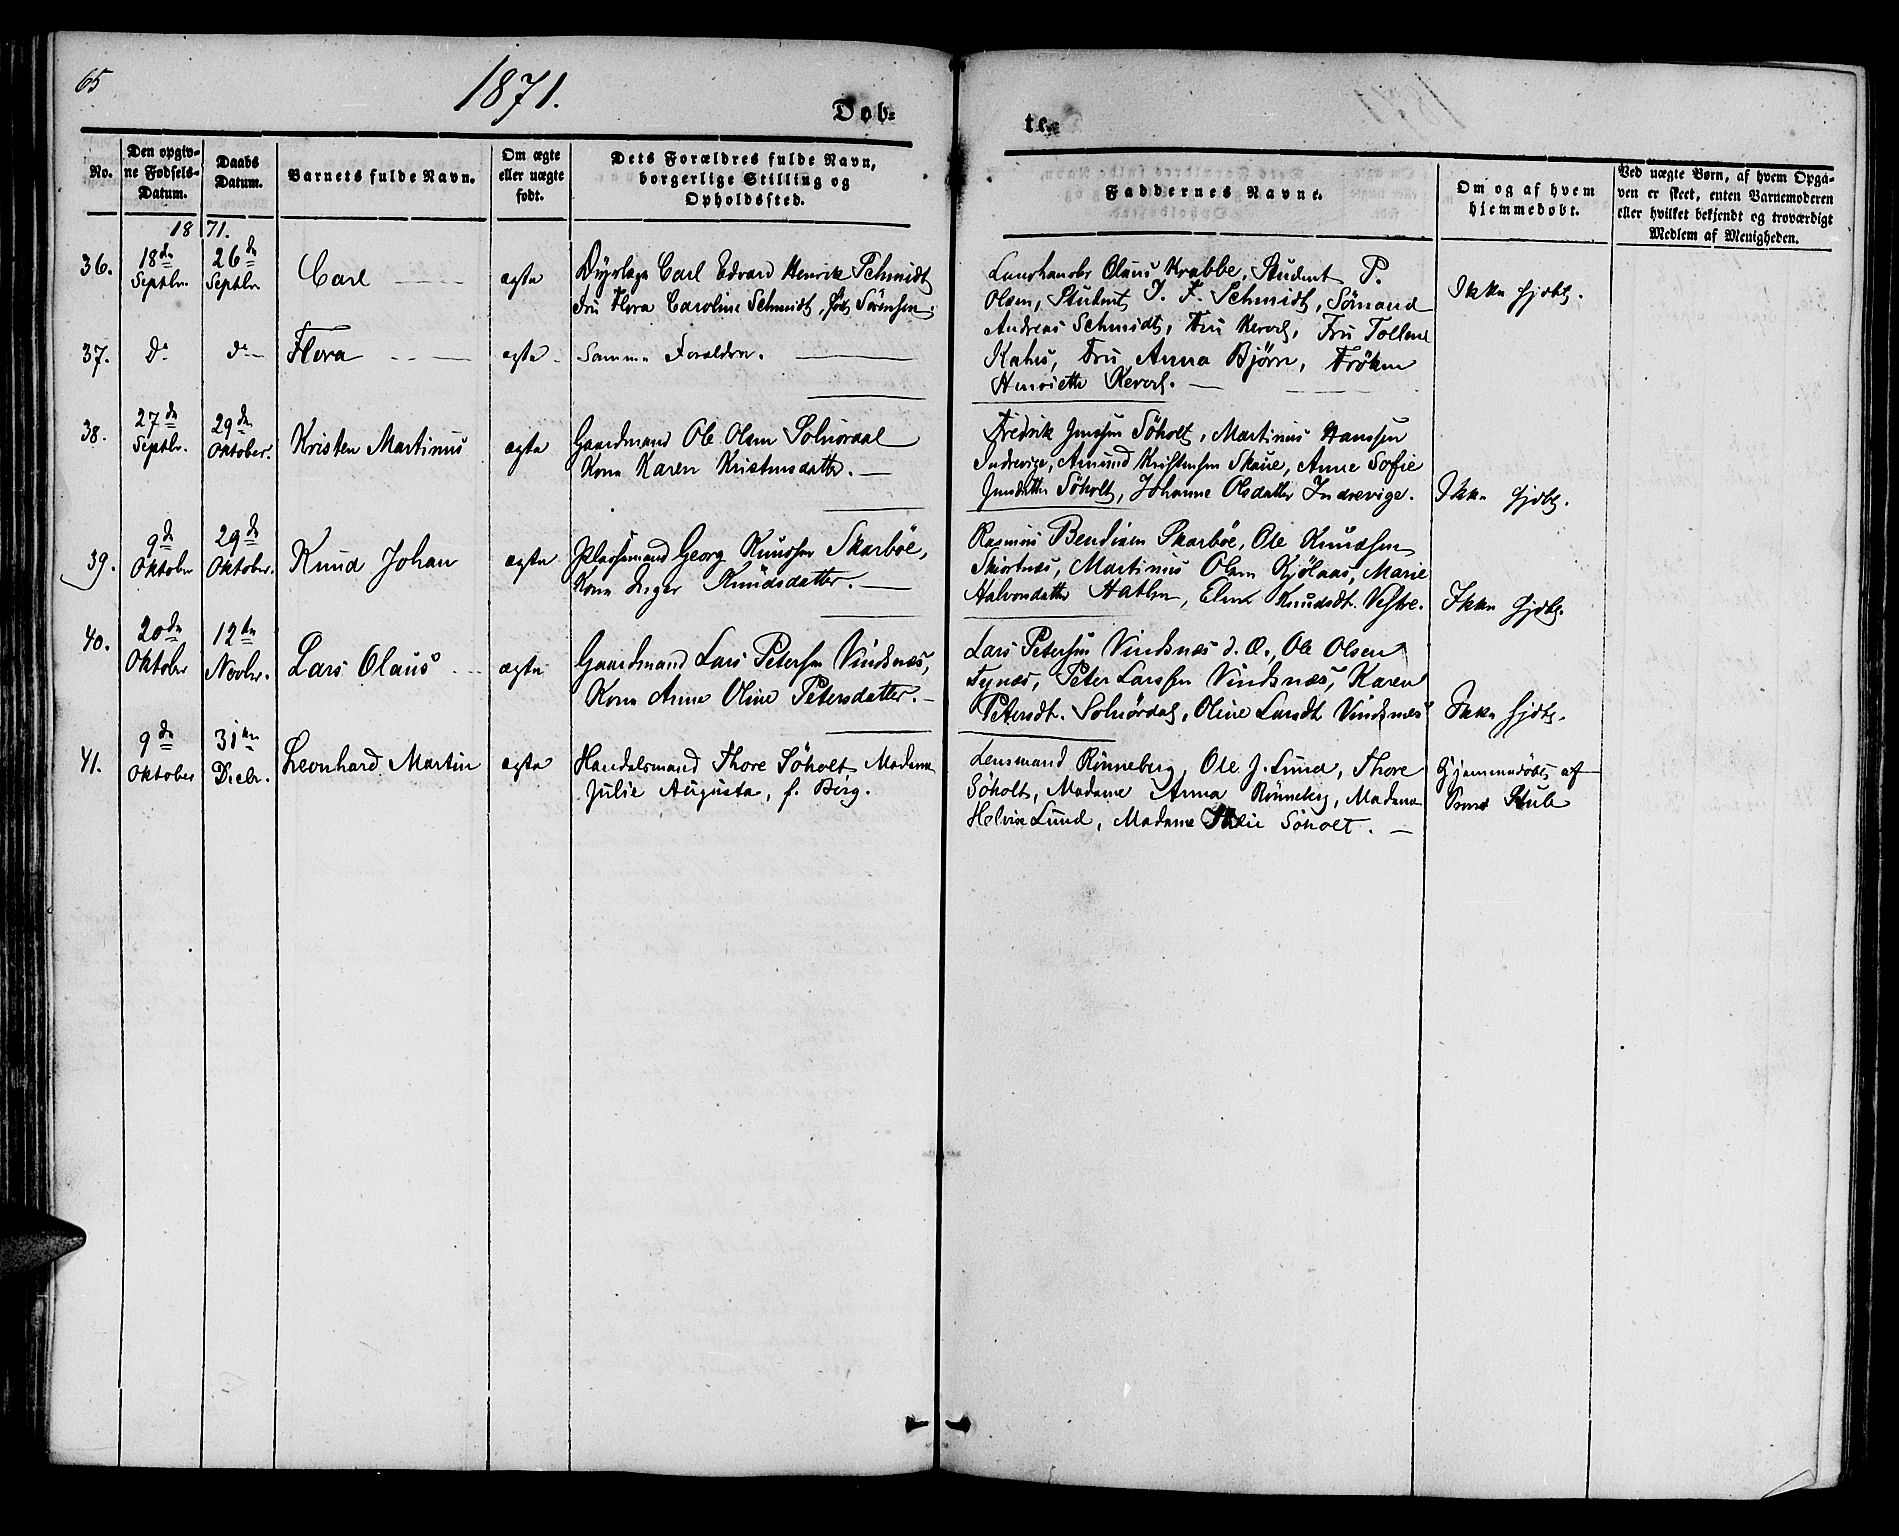 65
1871.
Døb-
te.
No.
Den opgiv-
ne Fødsels-
Datum.
Daabs
Datum.
Barnets fulde Navn.
Om ægte
eller uægte
født.
Dets Forældres fulde Navn,
borgerlige Stilling og
Opholdssted.
Faddernes Navne.
Om og af hvem
hjemmedøbt.
Ved uægte Børn, af hvem Opga-
ven er skeet, enten Barnemoderen
eller hvilket bekjendt og troværdigt
Medlem af Menigheden.
1871.
36.
18de
Septbr.
26de
Septbr.
Carl
ægte
Dyrlæge Carl Edvard Henrik Schmidt
Fru Flora Caroline Schmidt, født Sørensen.
Olaus Krabbe, Student P.
Olsen, Student J. F. Schmidt, Sömand
Andreas Schmidt, Fru Fru
Fru Anna Björn, Fröken
Henriette
Ikke hjdbt.
37.
do
do
Flora
ægte
Samme Forældre.
38.
27de
Septbr.
29de
Oktober.
Kristen Martinus
ægte
Gaardmand Ole Olsen Solnørdal
Kone Karen Kristensdatter.
Fredrik Jensen Söholt, Martinus Hanssen
Indrevige, Amund Kristensen Skaue, Anne Sofie
Jensdatter Söholt, Johanne Olsdatter Indrevige.
Ikke hjdbt.
39.
9de
Oktober
29de
Oktober.
Knud Johan
ægte
Pladsemand Georg Knudsen Skarbøe,
Kone Inger Knudsdatter.
Rasmus Bendixen Skarbøe, Ole Knudsen
Skiortnæs, Martinus Olsen Kjölaas, Marie
Halvorsdatter Hatlen, Knudsdt. Vestre.
Ikke hjdbt.
40.
20de
Oktober
12te
Novbr.
Lars Olaus
ægte
Gaardmand Lars Petersen Vindsnæs,
Kone Anne Oline Petersdatter.
Lars Petersen Vindsnæs d. Æ., Ole Olsen
Tynæs, Peter Larssen Vindsnæs, Karen
Petersdt. Solnördal, Oline Larsdt. Vindsnæs
Ikke hjdbt.
41.
9de
Oktober
31te
Decbr.
Leonhard Martin
ægte
Handelsmand Thore Söholt, Madame
Julie Augusta, f. Berg.
Lensmand Rönneberg, Ole J. Lund, Thore
Söholt, Madame Anna Rönneberg, Madame
Helvine Lund, Madame Julie Söholt.
Hjemmedöbt af
Stub